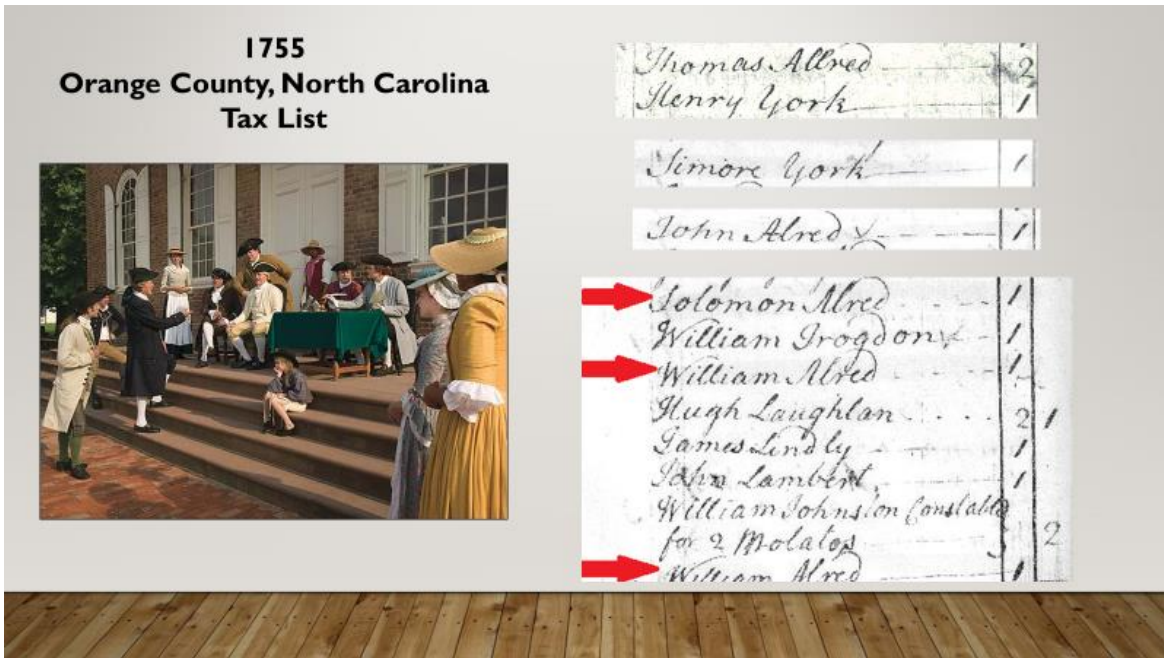 1755
Orange County, North Carolina
Tax List
Thomas Allred 2
Henry York 1
Simore York 1
John Alred 1
Solomon Alred 1
William Frogdon 1
William Alred 1
Hugh Laughlan 2 1
James Lindly 1
John Lambert 1
William Johnston Constable
for 2 Molatos 2
William Alred 1